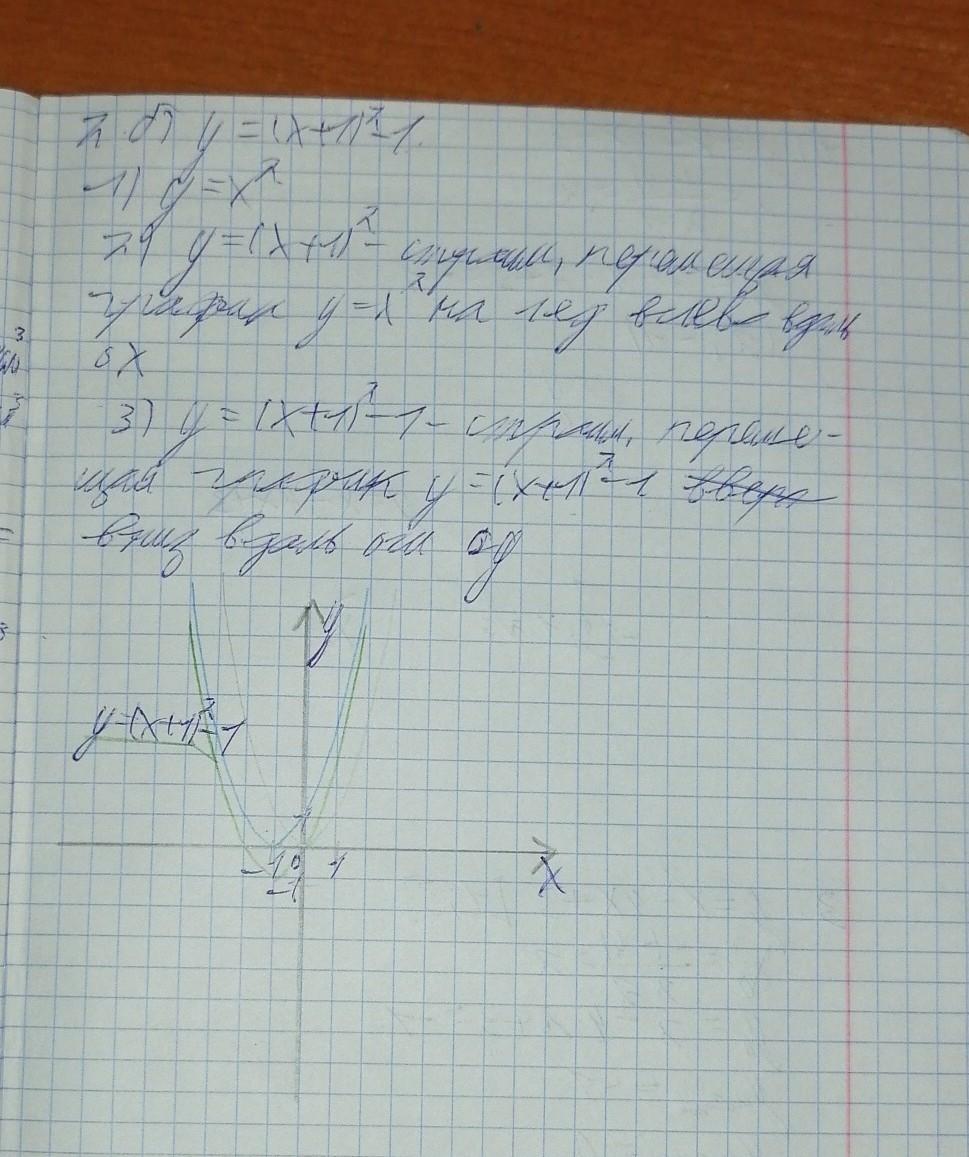 2. б) y = (x+1)²-1.
1) y = x²
2) y = (x+1)² - строим, перемещая
график y = x² на 1 ед влево вдоль
ox
3) y = (x+1)²-1 - строим, переме-
щая график y = (x+1)²-1 вверх
вниз вдоль оси oy
y
y=(x+1)²-1
1
-1 0 1
-1
x